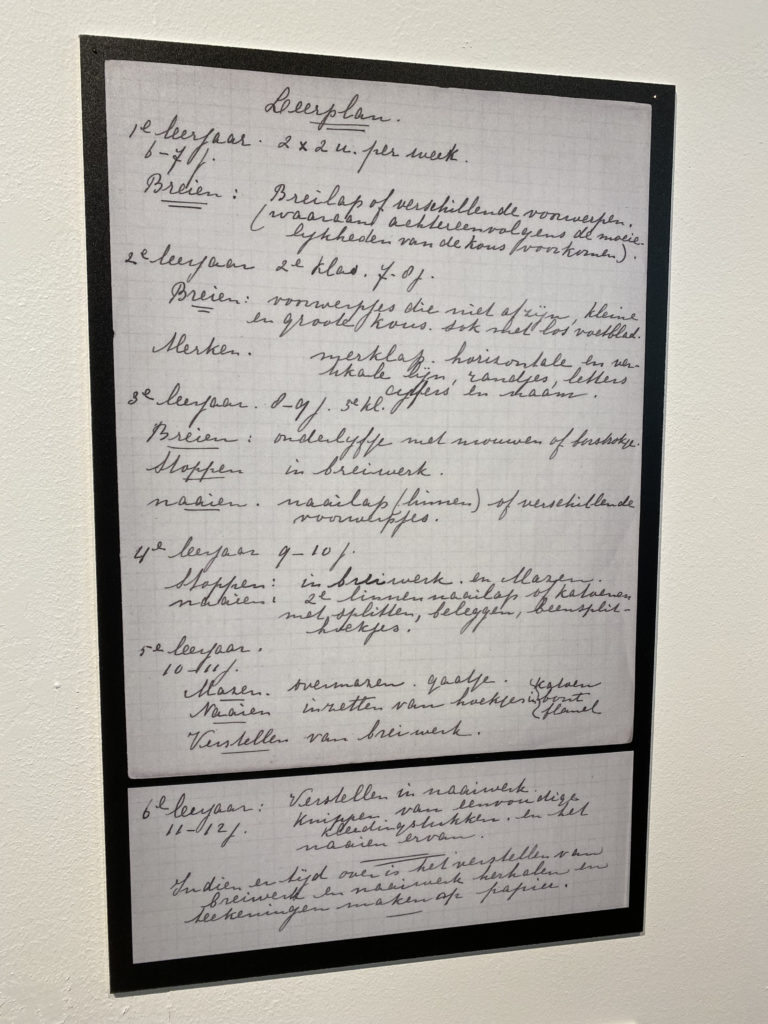 Leerplan.
1e leerjaar. 2 x 2 u. per week.
6-7 j.
Breien: Breilap of verschillende voorwerpen.
(waaraan achtereenvolgens de moeie-
lykheden van de kous voorkomen).
2e leerjaar 2e klas. 7-8 j.
Breien: voorwerpjes die niet af zijn, kleine
en groote kous. sok met los voetblad.
Merken. merklap. horizontale en ver-
tikale lijn, randjes, letters
cyffers en naam.
3e leerjaar. 8-9 j. 3e kl.
Breien: onderlyfje met mouwen of borstrokje.
Stoppen in breiwerk.
naaien. naailap (linnen) of verschillende
voorwerpjes.
4e leerjaar 9-10 j.
Stoppen: in breiwerk. en Mazen.
naaien: 2e linnen naailap of katoenen
met splitten, beleggen, beensplit-
hoekjes.
5e leerjaar.
10-11 j.
Mazen. overmazen. gaatje.
Naaien inzetten van hoekjes in { katoen
bont
flanel
Verstellen van breiwerk.
6e leerjaar: Verstellen in naaiwerk.
11-12 j. Knippen van eenvoudige
kledingstukken. en het
naaien ervan.
Indien er tijd over is het verstellen van
breiwerk en naaiwerk herhalen en
teekeningen maken op papier.